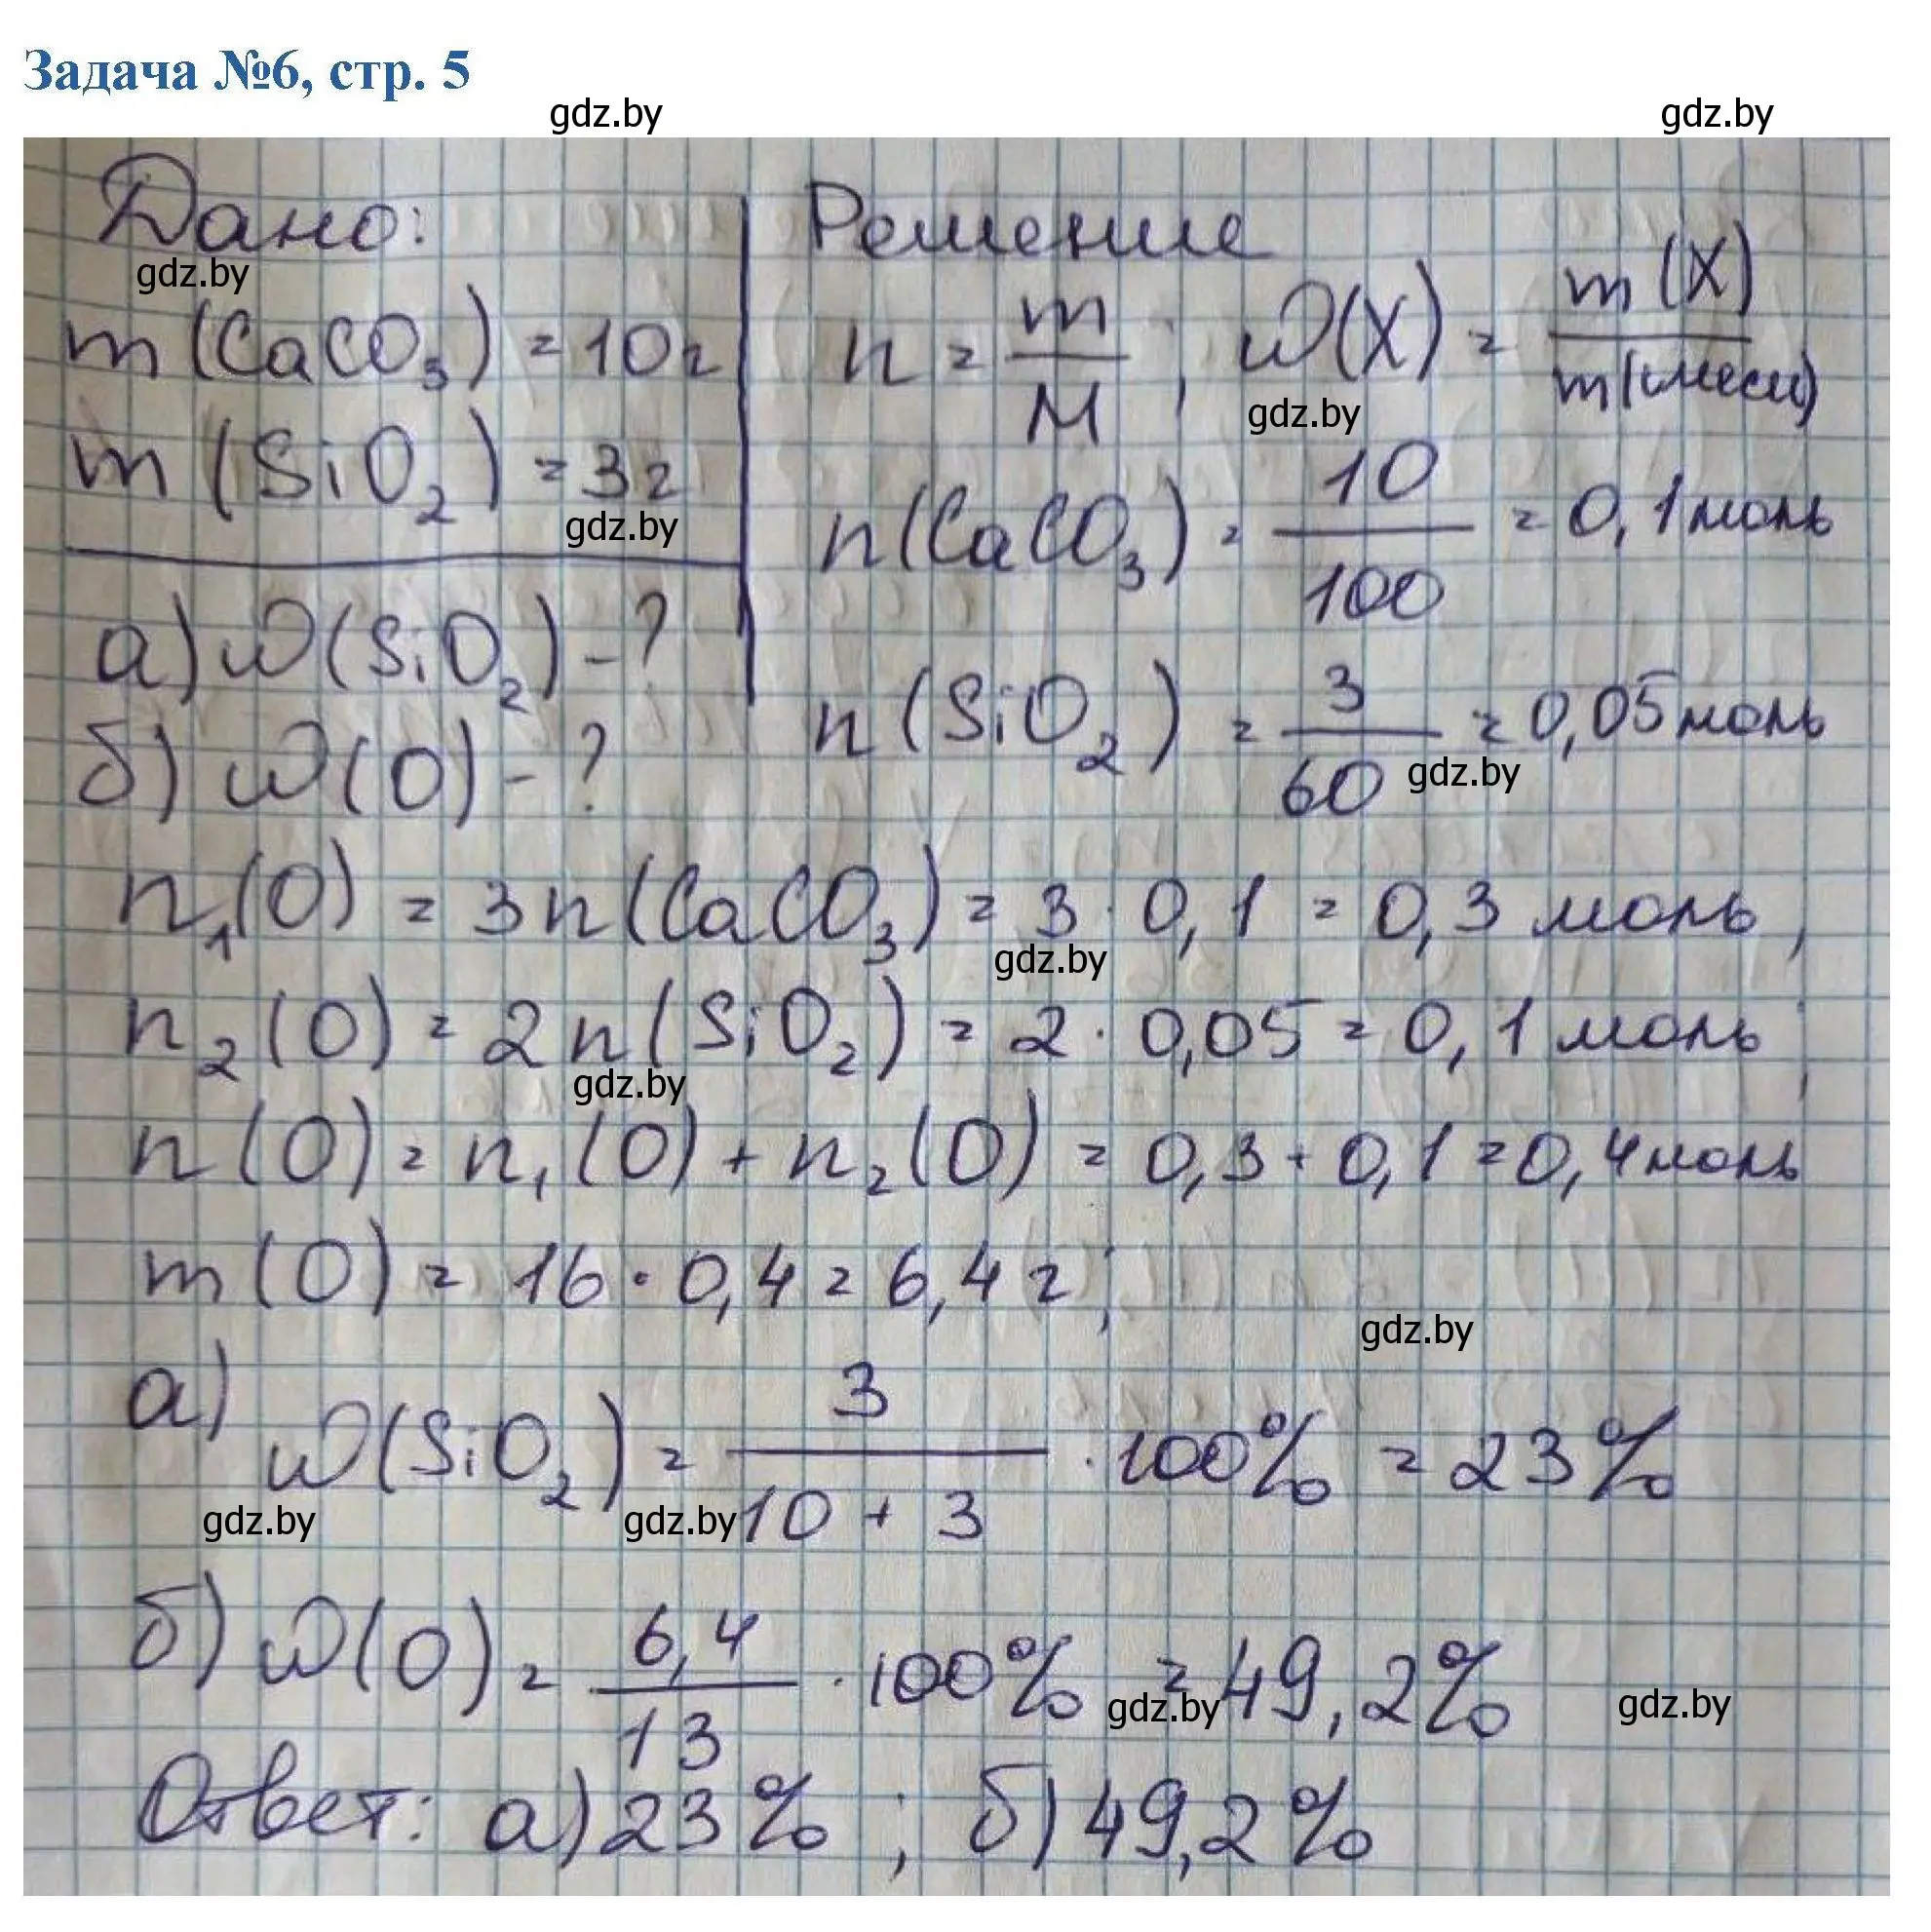 Задача №6, стр. 5
gdz.by gdz.by
Дано:
gdz.by
m(CaCO₃) = 10г
m(SiO₂) = 3г
gdz.by
а) ω(SiO₂) - ?
б) ω(O) - ?
Решение
n = m/M ; ω(X) = m(X)/m(смеси)
gdz.by
n(CaCO₃) = 10/100 = 0,1 моль
n(SiO₂) = 3/60 = 0,05 моль
gdz.by
n₁(O) = 3n(CaCO₃) = 3 · 0,1 = 0,3 моль ;
gdz.by
n₂(O) = 2n(SiO₂) = 2 · 0,05 = 0,1 моль ;
gdz.by
n(O) = n₁(O) + n₂(O) = 0,3 + 0,1 = 0,4 моль
m(O) = 16 · 0,4 = 6,4 г ;
gdz.by
а) ω(SiO₂) = 3/(10 + 3) · 100% = 23%
gdz.by gdz.by
б) ω(O) = 6,4/13 · 100% = 49,2%
gdz.by gdz.by
Ответ: а) 23% ; б) 49,2%